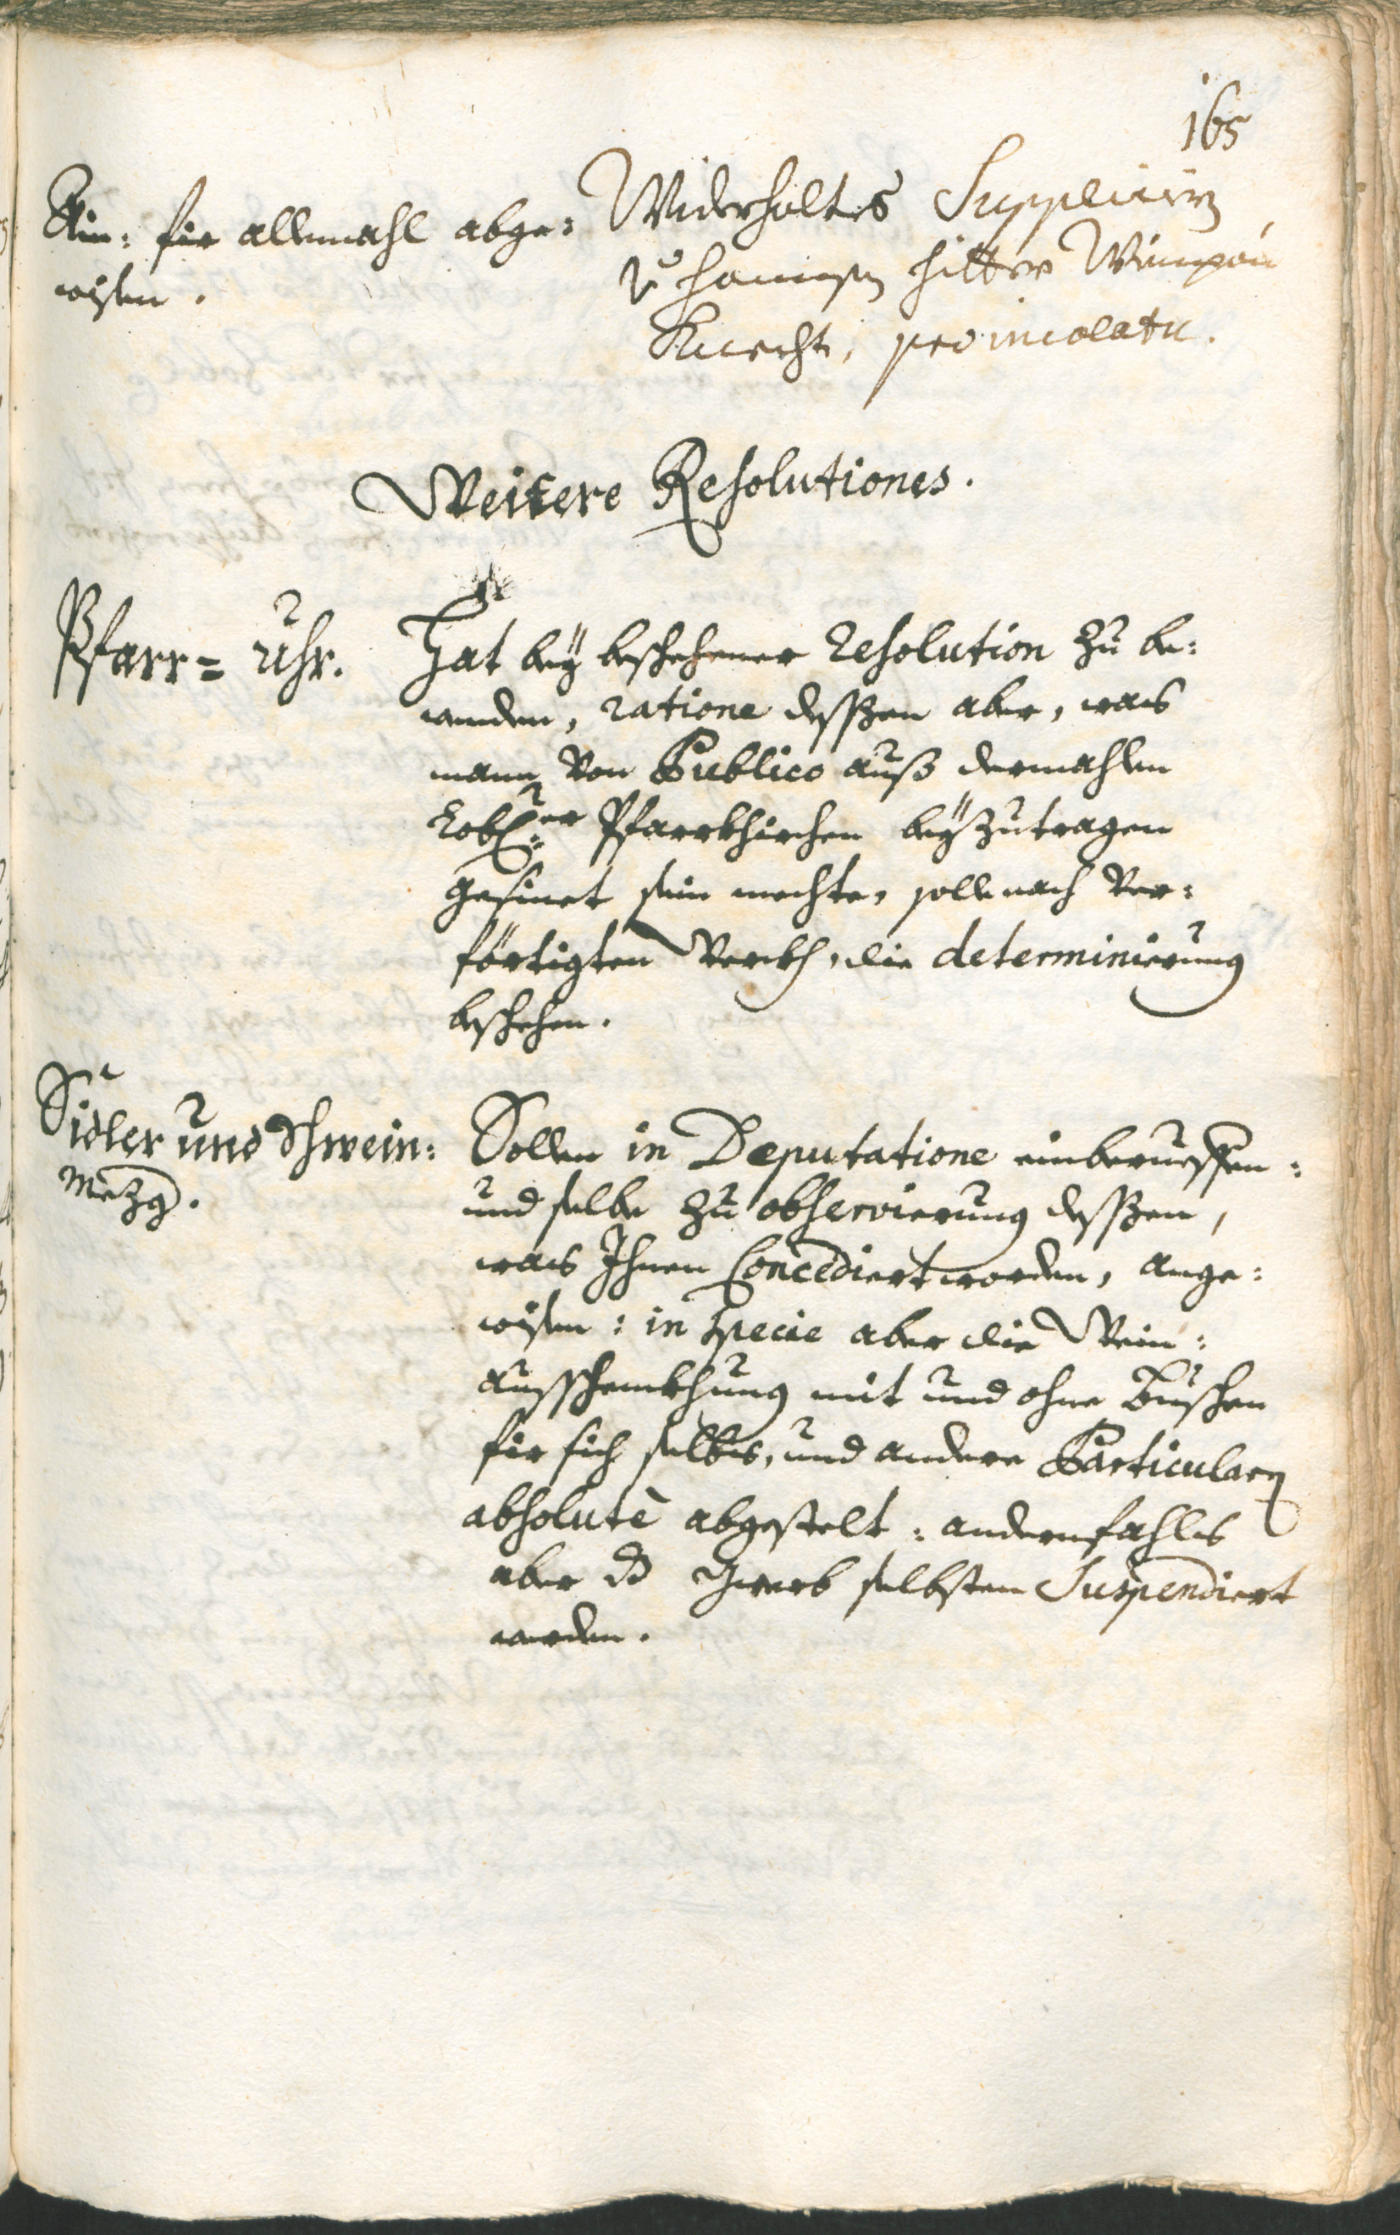 165
Ain: für allemahl abge:
wisen.
Widerholtes Supplicirn
Hitter
Knecht, pro incolatu.
Weitere Resolutiones.
Pfarr= Uhr.
Hat bey beschehener Resolution zu be:
wenden, ratione dessen aber, was
mann von Publico auß dermahlen
Lobl:er Pfarrkhirchen beyzutragen
gesinet sein mechte, solle nach ver:
förtigten Werckh, die determinierung
beschehen.
Sidler und Schwein:
Mezg.
Sollen in Deputatione einberueffen:
und selbe zu observierung dessen,
was Ihnen Concediert worden, ange:
wisen: in specie aber die Wein:
ausschenkhung mit und ohne Buschen
für sich selbs, und andere Particularn
absolutè abgestelt: andernfahls
aber dz Gwerb selbsten Suspendiert
werden.